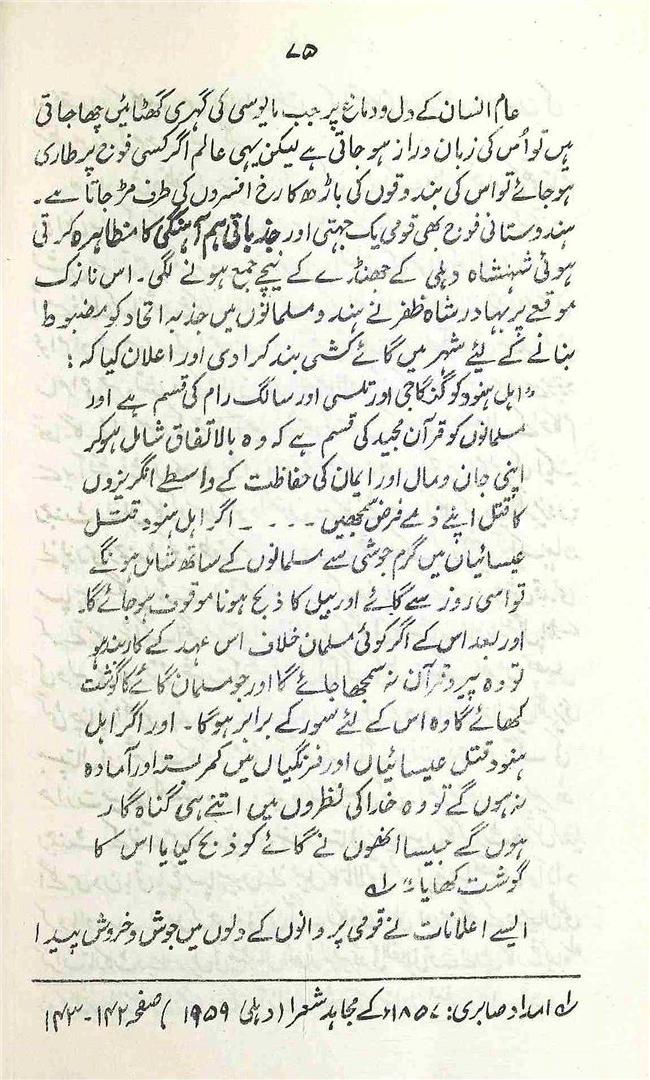 ۷۵
عام انسان کے دل و دماغ پر جب مایوسی کی گہری گھٹائیں چھا جاتی
ہیں تو اُس کی زبان دراز ہو جاتی ہے لیکن یہی عالم اگر کسی فوج پر طاری
ہو جائے تو اس کی بندوقوں کی باڑھ کا رخ افسروں کی طرف مڑ جاتا ہے۔
ہندوستانی فوج بھی قومی یک جہتی اور جذباتی ہم آہنگی کا مظاہرہ کرتی
ہوئی شہنشاہ دہلی کے جھنڈے کے نیچے جمع ہونے لگی۔ اس نازک
موقعے پر بہادر شاہ ظفر نے ہند و مسلمانوں میں جذبہ اتحاد کو مضبوط
بنانے کے لیئے شہر میں گائے کشی بند کرا دی اور اعلان کیا کہ:
"اہل ہنود کو گنگا جی اور تلسی اور سالگ رام کی قسم ہے اور
مسلمانوں کو قرآن مجید کی قسم ہے کہ وہ بالاتفاق شامل ہو کر
اپنی جان و مال اور ایمان کی حفاظت کے واسطے انگریزوں
کا قتل اپنے ذمے فرض سمجھیں ۔۔۔۔ اگر اہل ہنود قتل
عیسائیاں میں گرم جوشی سے مسلمانوں کے ساتھ شامل ہونگے
تو اسی روز سے گائے اور بیل کا ذبح ہونا موقوف ہو جائے گا۔
اور بعد اس کے اگر کوئی مسلمان خلاف اس عہد کے کاربند ہو
تو وہ پیرو قرآن نہ سمجھا جائے گا اور جو مسلمان گائے کا گوشت
کھائے گا وہ اس کے لئے سور کے برابر ہوگا۔ اور اگر اہل
ہنود قتل عیسائیاں اور فرنگیاں میں کمر بستہ اور آمادہ
نہ ہوں گے تو وہ خدا کی نظروں میں اتنے ہی گناہ گار
ہوں گے جیسا انھوں نے گائے کو ذبح کیا یا اس کا
گوشت کھایا" ؎۱
ایسے اعلانات نے قومی پروانوں کے دلوں میں جوش و خروش پیدا
؎۱ امداد صابری: ۱۸۵۷ء کے مجاہد شعرا (دہلی ۱۹۵۹) صفحہ ۱۴۲-۱۴۳